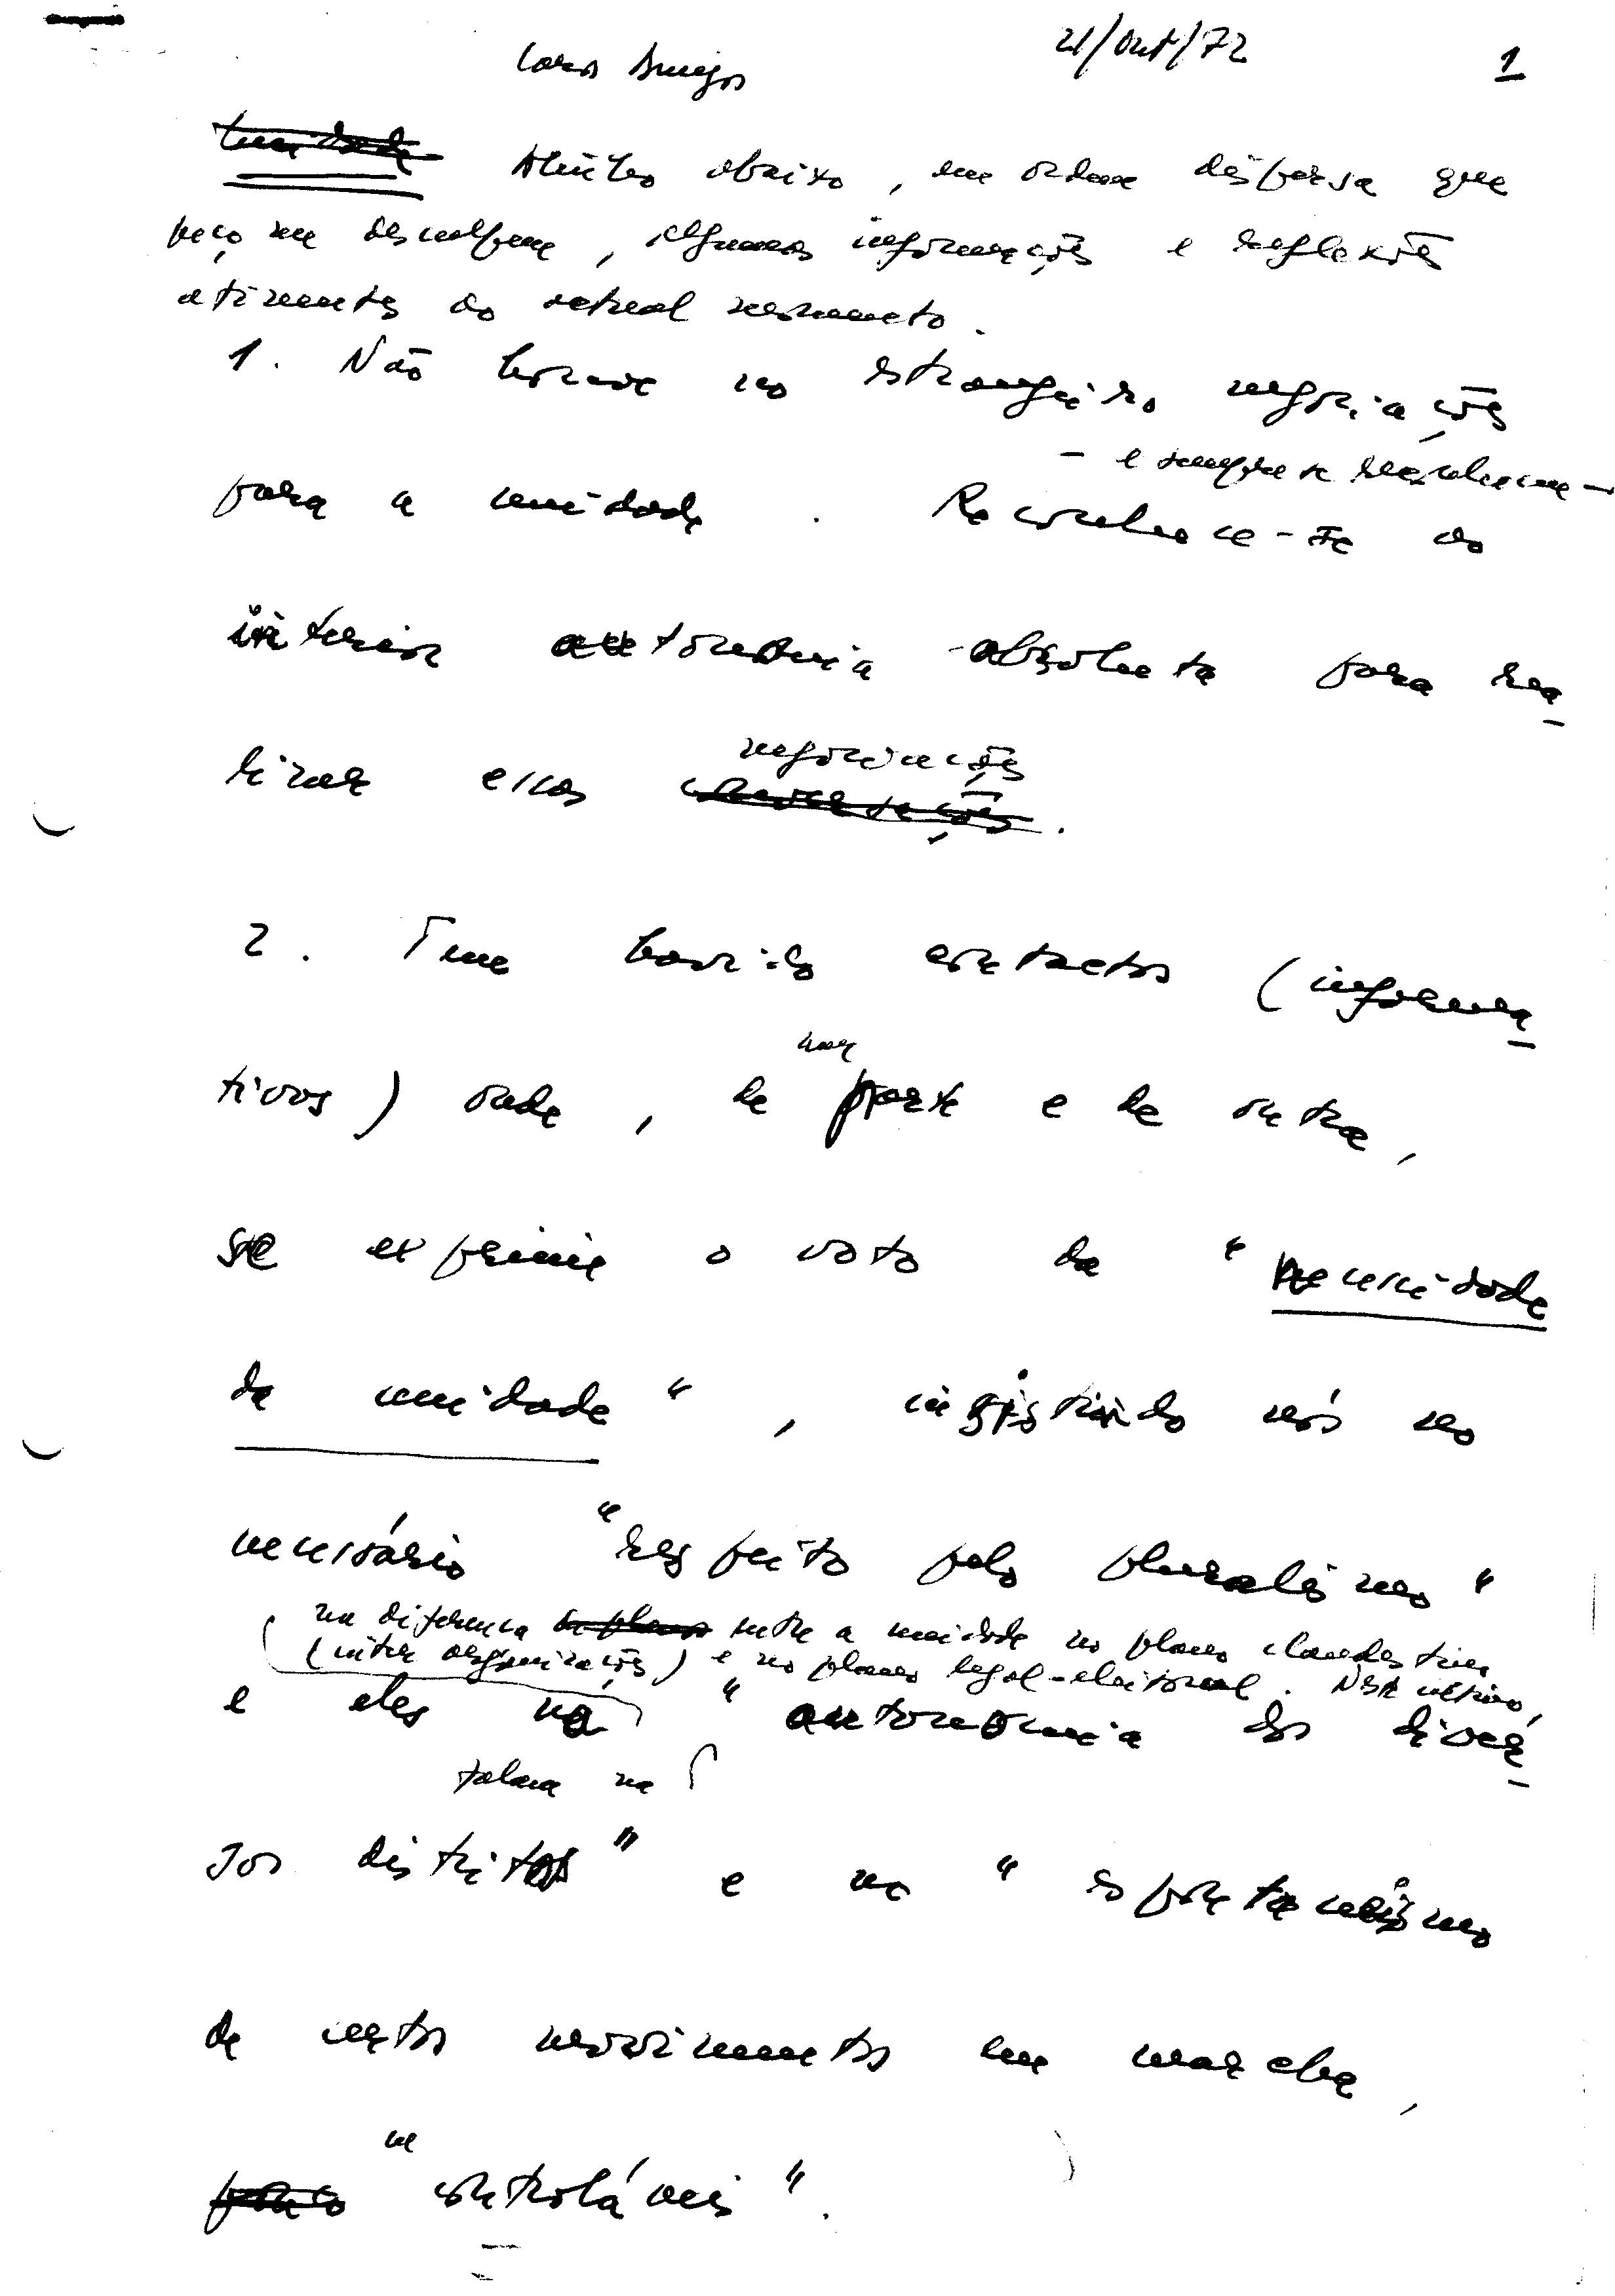 21/Out/72
1
Caros Amigos
Unidade Alinho abaixo, em ordem dispersa que
peço me desculpem, algumas informações e reflexões
atinentes ao actual momento.
1. Não houve no estrangeiro negociações
- e sempre se
para a unidade. Reconhece-se ao
interior autonomia absoluta para rea_
lizar essas negociações
conversações.
2. Tem havido contactos (informa_
tivos) onde, de uma parte e de outra,
se exprimiu o voto da "necessidade
da unidade", insistindo nós no
necessário "respeito pelo pluralismo"
na diferença entre a unidade no plano clandestino
(inter organizações) e no plano legal-eleitoral. Neste último,
e eles na "autonomia dos diver_
na
sos distritos" e no "espontaneísmo
de certos movimentos em marcha,
in
pouco controláveis".